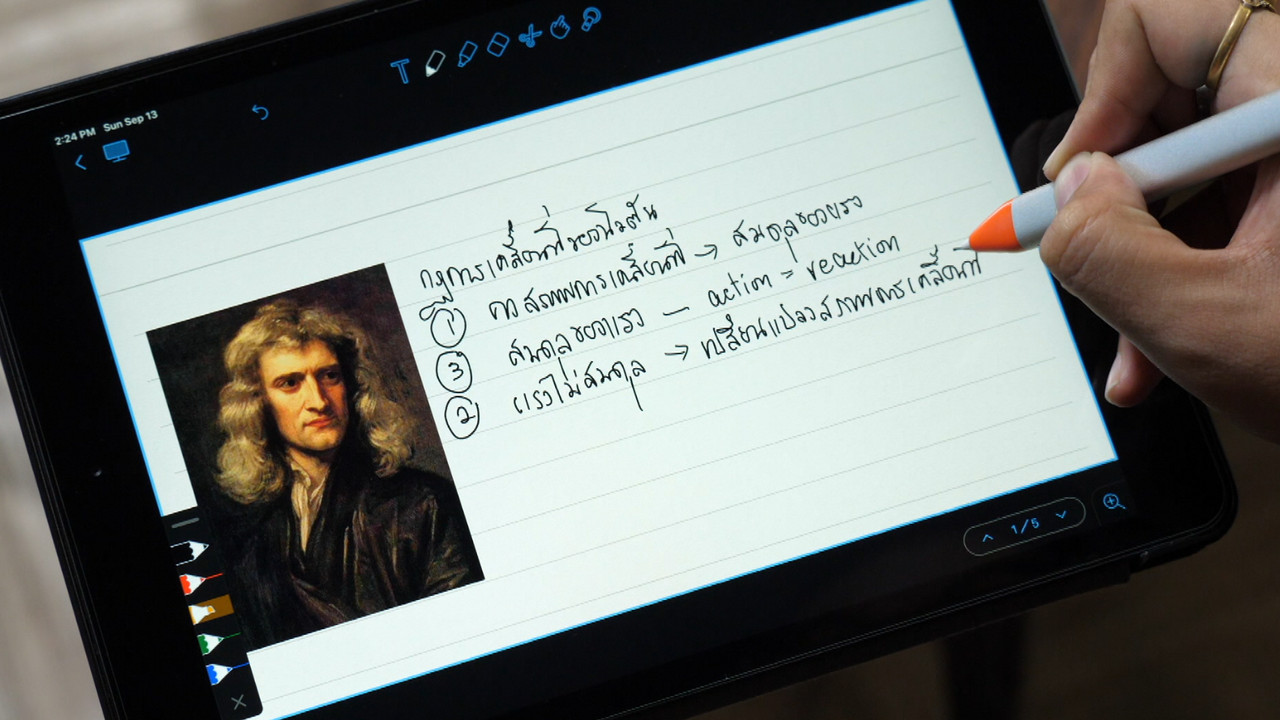 T
2:24 PM Sun Sep 13
กฎการเคลื่อนที่ของนิวตัน
① คงสภาพการเคลื่อนที่ → สมดุลของแรง
③ สมดุลของแรง — action = reaction
② แรงไม่สมดุล → เปลี่ยนแปลงสภาพการเคลื่อนที่
1/5